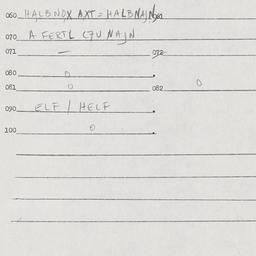 060 HALBNDX AXT = HALBNAJN 061
070 A FERTL CZU NAJN
071 — 072
080 0
081 0 082 0
090 ELF / HELF
100 0